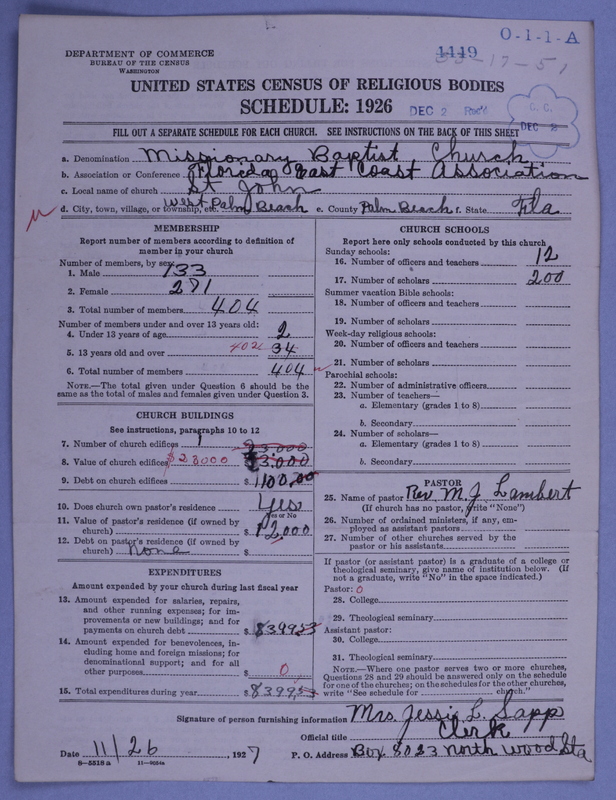 O-1-1-A
DEPARTMENT OF COMMERCE
BUREAU OF THE CENSUS
WASHINGTON
4449
59-17-51
UNITED STATES CENSUS OF RELIGIOUS BODIES
SCHEDULE: 1926
DEC 2 Rec'd
C. C.
DEC 2
FILL OUT A SEPARATE SCHEDULE FOR EACH CHURCH. SEE INSTRUCTIONS ON THE BACK OF THIS SHEET
a. Denomination Missionary Baptist Church
b. Association or Conference Florida East Coast Association
c. Local name of church St John
d. City, town, village, or township, etc. West Palm Beach e. County Palm Beach f. State Fla
MEMBERSHIP
Report number of members according to definition of
member in your church
Number of members, by sex:
1. Male 133
2. Female 271
3. Total number of members 404
Number of members under and over 13 years old:
4. Under 13 years of age 2
5. 13 years old and over 402 34
6. Total number of members 404
NOTE.—The total given under Question 6 should be the
same as the total of males and females given under Question 3.
CHURCH BUILDINGS
See instructions, paragraphs 10 to 12
7. Number of church edifices 1
8. Value of church edifices $23000 $3.000
9. Debt on church edifices $1,100.00
10. Does church own pastor's residence Yes
Yes or No
11. Value of pastor's residence (if owned by
church) $ 2,000
12. Debt on pastor's residence (if owned by
church) none $
EXPENDITURES
Amount expended by your church during last fiscal year
13. Amount expended for salaries, repairs,
and other running expenses; for im-
provements or new buildings; and for
payments on church debt $ 839953
14. Amount expended for benevolences, in-
cluding home and foreign missions; for
denominational support; and for all
other purposes $ 0
15. Total expenditures during year $ 839953
CHURCH SCHOOLS
Report here only schools conducted by this church
Sunday schools:
16. Number of officers and teachers 12
17. Number of scholars 200
Summer vacation Bible schools:
18. Number of officers and teachers
19. Number of scholars
Week-day religious schools:
20. Number of officers and teachers
21. Number of scholars
Parochial schools:
22. Number of administrative officers
23. Number of teachers—
a. Elementary (grades 1 to 8)
b. Secondary
24. Number of scholars—
a. Elementary (grades 1 to 8)
b. Secondary
PASTOR
25. Name of pastor Rev. M. J Lambert
(If church has no pastor, write "None")
26. Number of ordained ministers, if any, em-
ployed as assistant pastors
27. Number of other churches served by the
pastor or his assistants
If pastor (or assistant pastor) is a graduate of a college or
theological seminary, give name of institution below. (If
not a graduate, write "No" in the space indicated.)
Pastor: 0
28. College
29. Theological seminary
Assistant pastor:
30. College
31. Theological seminary
NOTE.—Where one pastor serves two or more churches,
Questions 28 and 29 should be answered only on the schedule
for one of the churches; on the schedules for the other churches,
write "See schedule for church."
Signature of person furnishing information Mrs. Jessie L. Sapp
Official title Clerk
Date 11/26, 1927 P. O. Address Box 8023 North Wood Sta
8—5518a 11—9054a